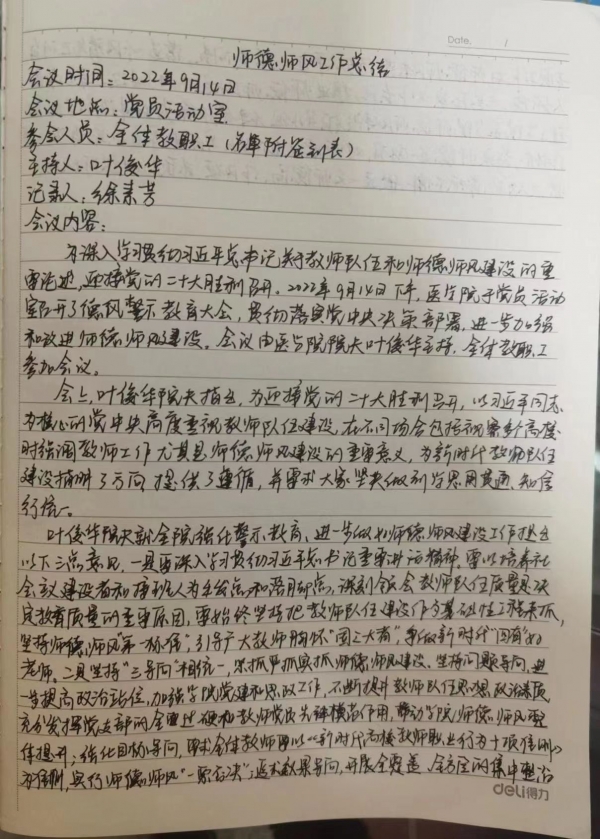 Date. /
师德师风工作总结
会议时间：2022年9月14日
会议地点：党员活动室
参会人员：全体教职工（名单附签到表）
主持人：叶俊华
记录人：徐素芳
会议内容：
为深入学习贯彻习近平总书记关于教师队伍和师德师风建设的重
要论述，迎接党的二十大胜利召开。2022年9月14日下午，医学院于党员活动
室召开了德风警示教育大会，贯彻落实党中央决策部署，进一步加强
和改进师德师风建设。会议由医学院院长叶俊华主持，全体教职工
参加会议。
会上，叶俊华院长指出，为迎接党的二十大胜利召开，以习近平同志
为核心的党中央高度重视教师队伍建设，在不同场合包括视察多个高度
时强调教师工作尤其是师德师风建设的重要意义，为新时代教师队伍
建设指明了方向，提供了遵循，并要求大家坚决做到学思用贯通、知信
行统一。
叶俊华院长就全院强化警示教育、进一步做好师德师风建设工作提出
以下三点意见，一是要深入学习贯彻习近平总书记重要讲话精神，要以培养社
会主义建设者和接班人为出发点和落脚点，深刻领会教师队伍质量是决
定教育质量的重要原因，要始终坚持把教师队伍建设作为基础性工程来抓，
坚持师德师风“第一标准”，引导广大教师胸怀“国之大者”，争做新时代“四有”好
老师，二是坚持“三导向”相统一，常抓严抓实抓师德师风建设、坚持问题导向，进
一步提高政治站位，加强学院党建和思政工作，不断提升教师队伍思想政治素质
充分发挥党支部的全面过硬和教师党员先锋模范作用，带动学院师德师风整
体提升；强化目标导向，要求全体教师要以《新时代高校教师职业行为十项准则》
为准则，实行师德师风“一票否决”；追求效果导向，开展全覆盖、全方位的集中整治
deli得力